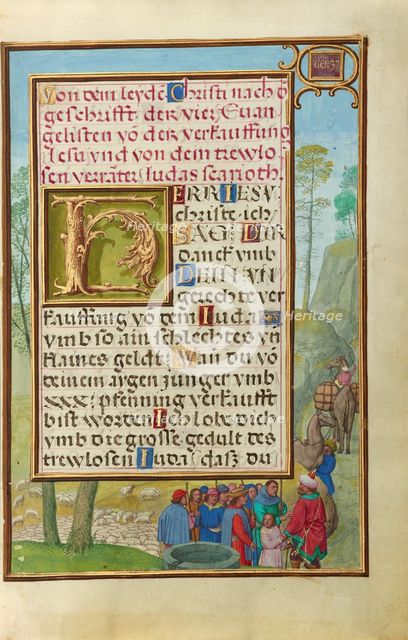 GEN·37
Von dem leydē Christi nach d̄
geschrifft der vier Euan
gelisten vō der verkauffung
Jesu vnd von dem trewlo
sen verräter Judas scarioth.
HERR IESV
christe ich
SAG DIR
danck vmb
DEIN VN
gerechte ver
kauffung vō dem Iuda
vmb so ain schlechtes vn
klaines geldt. Wan du vō
deinem aygen Junger vmb
XXX. pfenning verkaufft
bist worden Ich lobe dich
vmb die grosse gedult des
trewlosen Iuda dasz du
Heritage